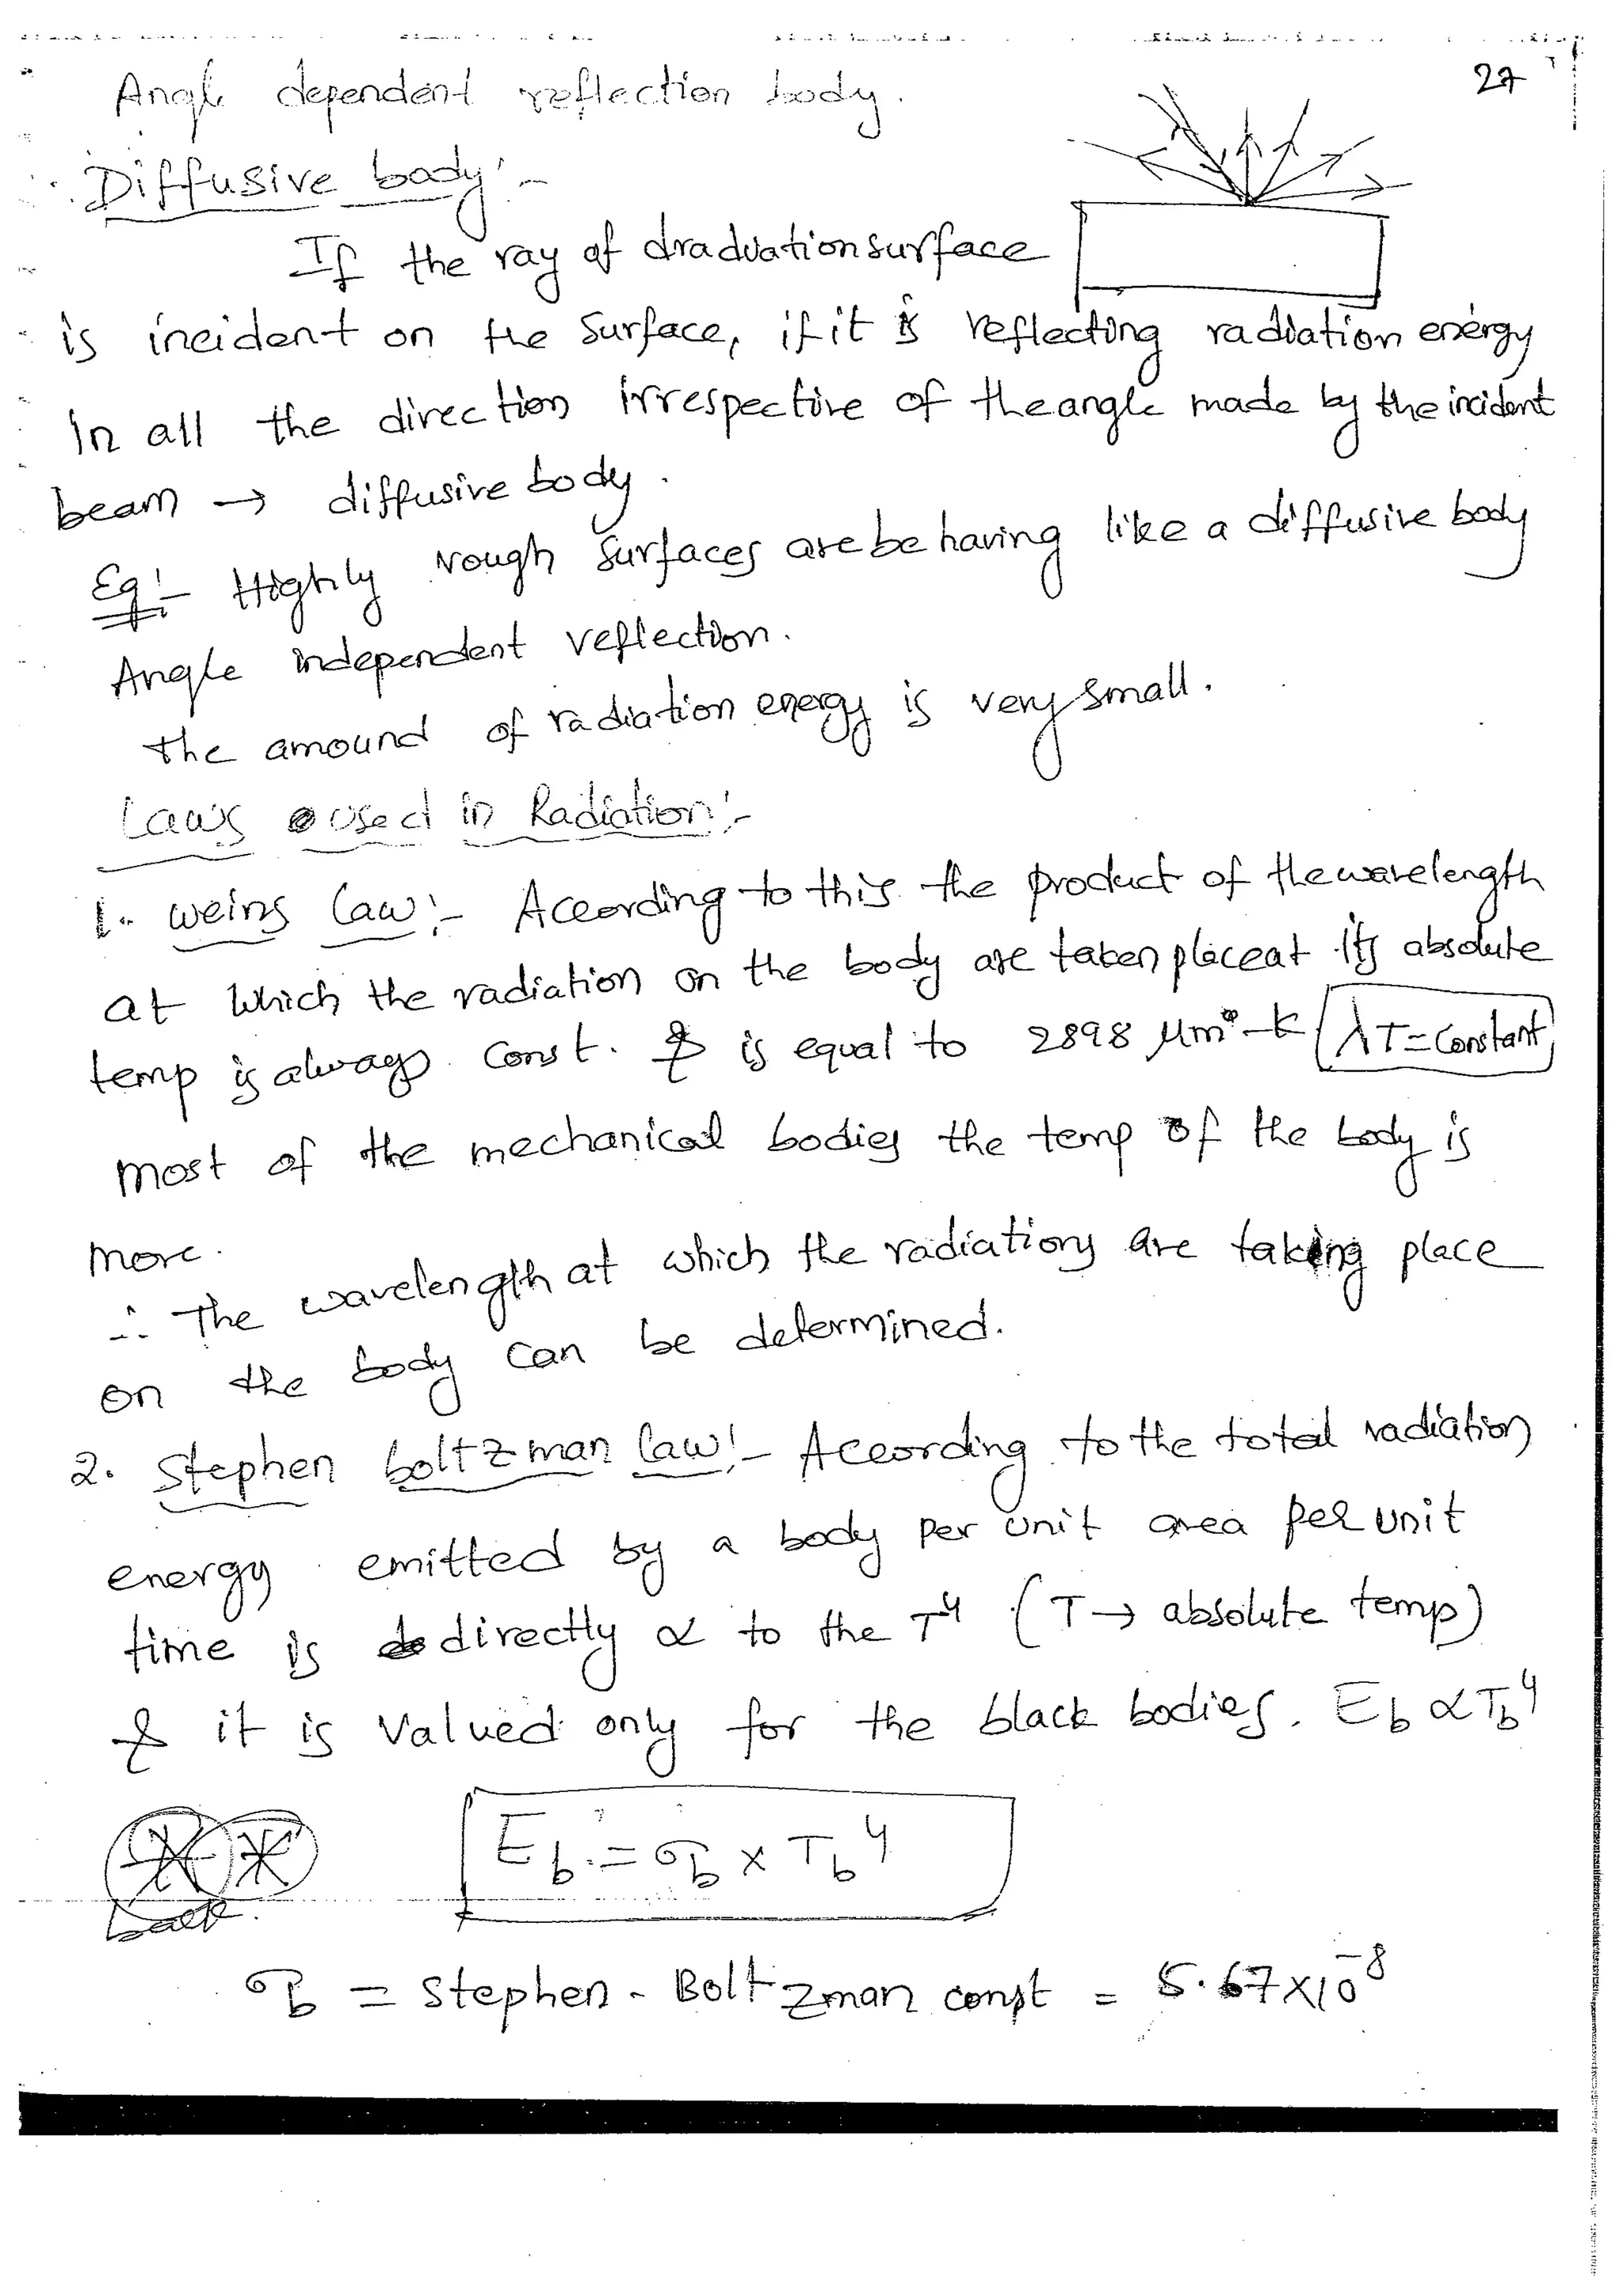 27
Angle dependent reflection body.
Diffusive body:-
If the ray of draduation surface
is incident on the surface, if it is reflecting radiation energy
In all the direction irrespective of the angle made by the incident
beam → diffusive body.
Eg:- Highly rough surfaces are behaving like a diffusive body
Angle independent reflection.
the amound of radiation energy is very small.
Laws used in Radiation:-
1. weins law:- According to this the product of the wavelength
at which the radiation on the body are taken place at its absolute
temp is always const. & is equal to 2898 μm-k λT=Constant
most of the mechanical bodies the temp of the body is
more.
∴ The wavelength at which the radiations are taking place
on the body can be determined.
2. Stephen boltzman law:- According to the total radiation
energy emitted by a body per unit area per unit
time is directly α to the T⁴ (T → absolute temp)
& it is valued only for the black bodies. Eb α Tb⁴
Eb = σb x Tb⁴
σb = Stephen - Boltzman const = 5.67x10⁻⁸